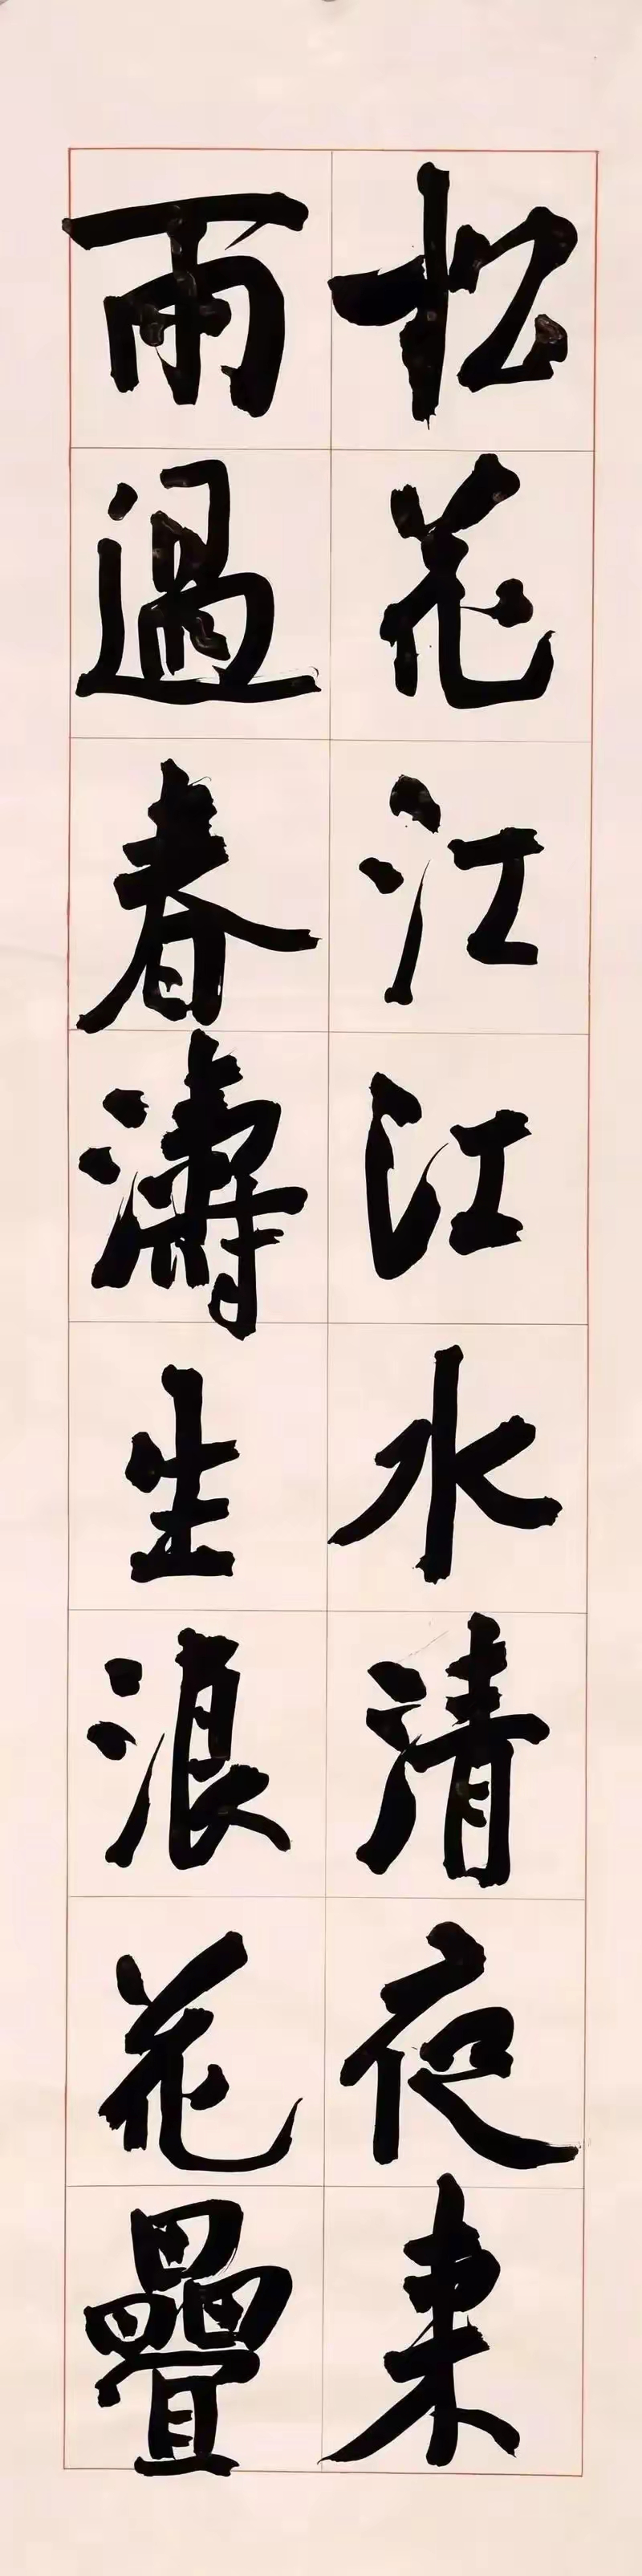 松花江江水清夜來
雨過春濤生浪花疊